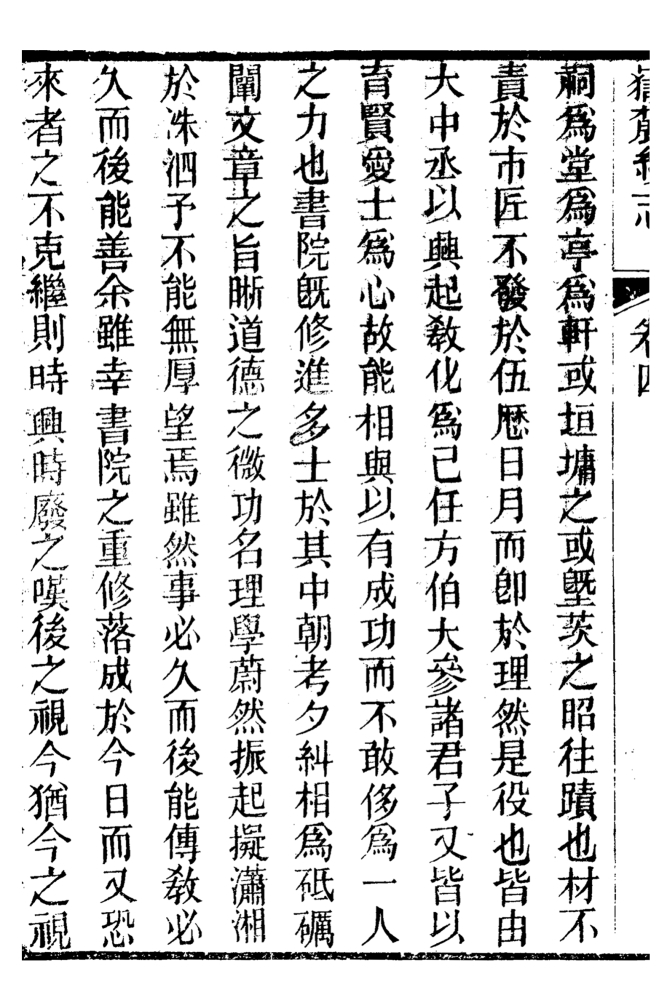 嶽麓續志 卷四
嗣爲堂爲亭爲軒或垣墉之或墍茨之昭往蹟也材不
責於市匠不發於伍厯日月而卽於理然是役也皆由
大中丞以興起敎化爲己任方伯大參諸君子又皆以
育賢愛士爲心故能相與以有成功而不敢侈爲一人
之力也書院旣修進多士於其中朝考夕糾相爲砥礪
闡文章之旨晰道德之微功名理學蔚然振起擬瀟湘
於洙泗予不能無厚望焉雖然事必久而後能傳敎必
久而後能善余雖幸書院之重修落成於今日而又恐
來者之不克繼則時興時廢之嘆後之視今猶今之視